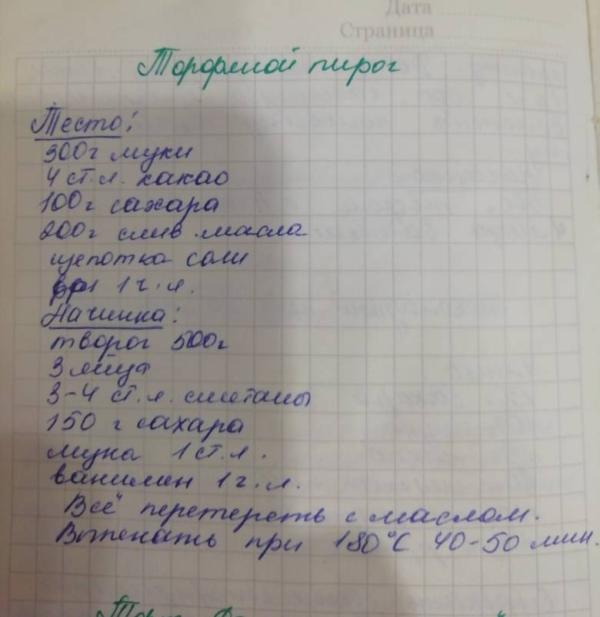 Дата
Страница
Торфяной пирог
Тесто:
300г муки
4 ст.л. какао
100г сахара
200г слив масла
щепотка соли
1 ч.л.
Начинка:
творог 500г
3 яйца
3-4 ст.л. сметаны
150 г сахара
мука 1 ст.л.
ванилин 1 ч.л.
Всё перетереть с маслом.
Выпекать при 180°С 40-50 мин.